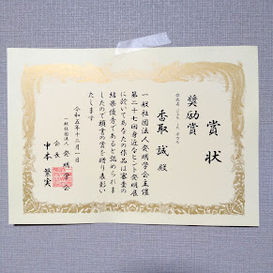 賞状
奨励賞
香取 誠 殿
一般社団法人発明学会主催
第二十七回身近なヒント発明展
に於いてあなたの作品は審査の
結果優秀であると認められま
したので頭書の賞を贈り表彰い
たします
令和五年十二月一日
一般社団法人 発明学会
会長 中本繁実